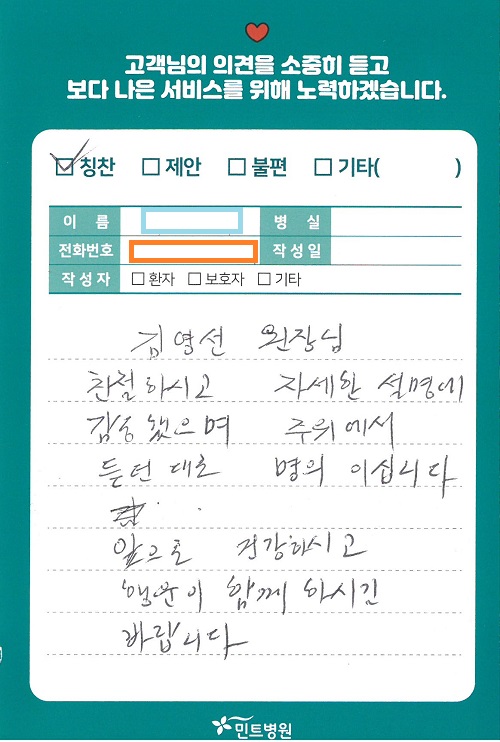 고객님의 의견을 소중히 듣고
보다 나은 서비스를 위해 노력하겠습니다.
칭찬 제안 불편 기타( )
이 름 병 실
전화번호 작 성 일
작 성 자 환자 보호자 기타
김영선 원장님
친절하시고 자세한 설명에
감동했으며 주위에서
듣던대로 명의 이십니다
앞으로 건강하시고
행운이 함께 하시킨
바랍니다
민트병원